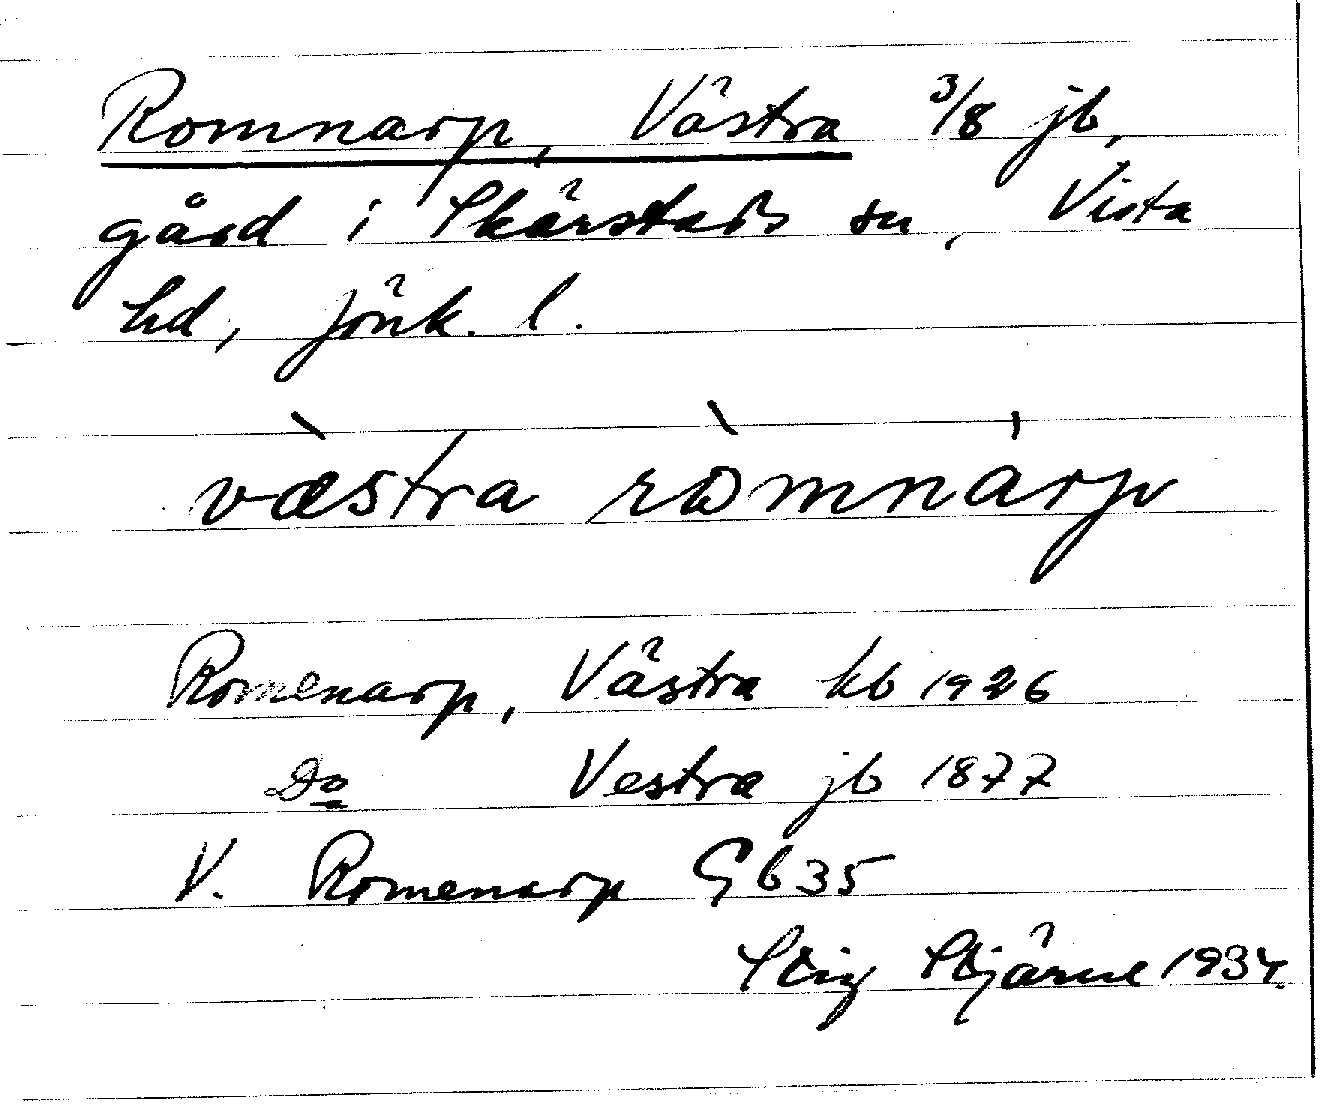 Romnarp, Västra 3/8 jb,
gård i Skärstads sn, Vista
hd, Jönk. l.
væ̀stra ròmnárp
Romenarp, Västra kb 1926
Do Vestra jb 1877
V. Romenarp Gb 35
Stig Stjärne 1934.